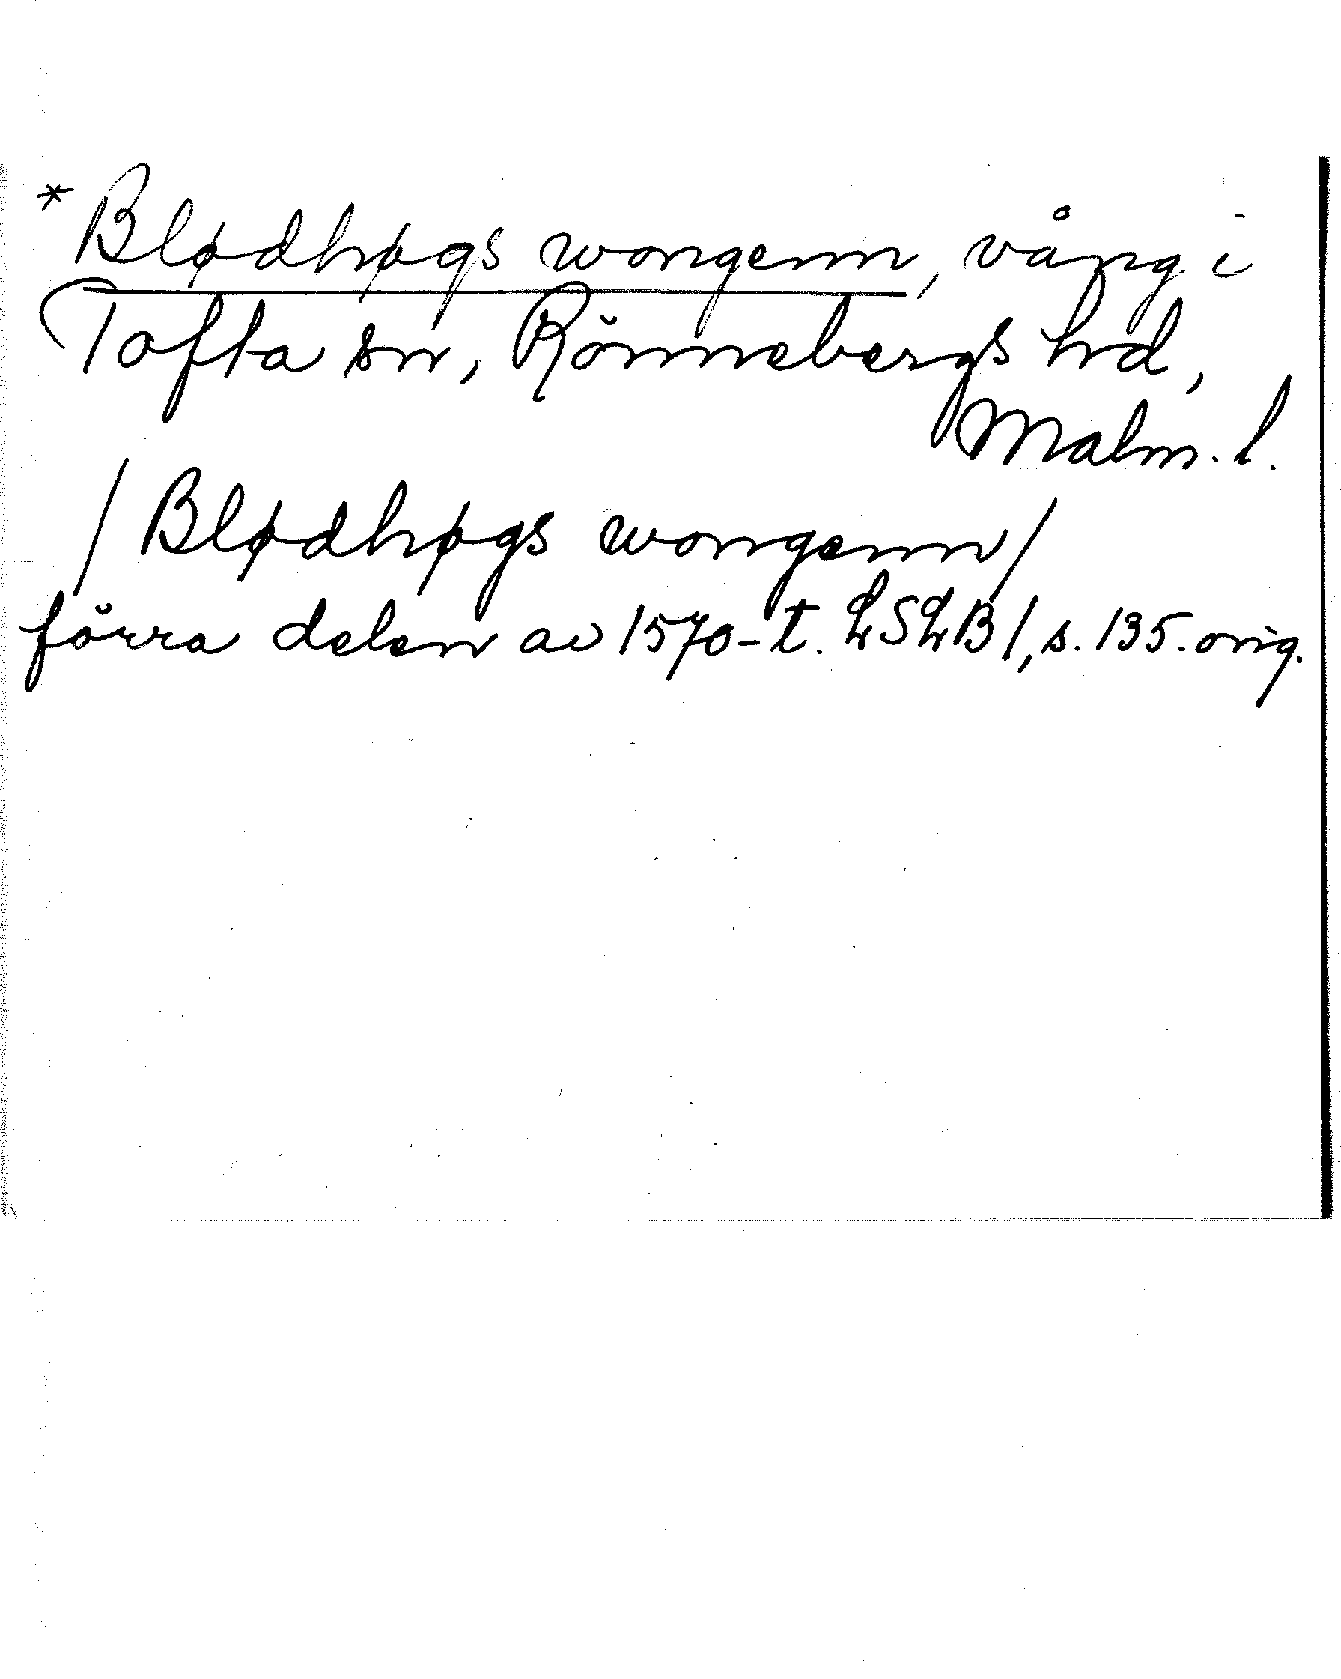 * Blødhøgs wongenn, vång i
Tofta sn, Rönnebergs hd,
Malm. l.
/Blødhøgs wongenn/
förra delen av 1570-t. LSLB 1, s. 135. orig.